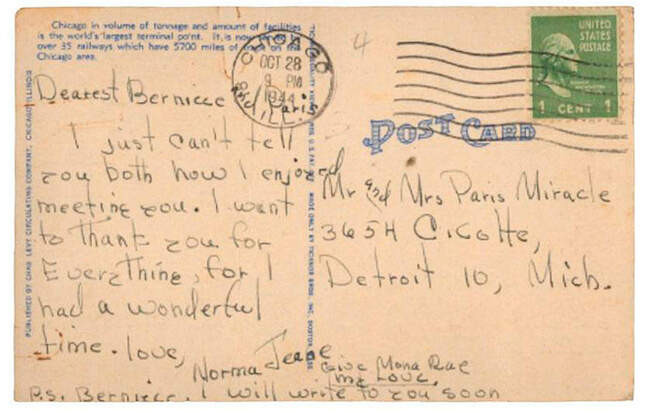 Chicago in volume of tonnage and amount of facilities
is the world's largest terminal point. It is now served by
over 35 railways which have 5700 miles of track on the
Chicago area.
CHICAGO
OCT 28
9 PM
1944
ILL.
4
UNITED
STATES
POSTAGE
1 CENT 1
POST CARD
PUBLISHED BY CHAS. LEVY CIRCULATING COMPANY, CHICAGO, ILLINOIS
MADE ONLY BY TICHNOR BROS., INC., BOSTON
Dearest Bernicce
and Paris
I just can't tell
you both how I enjoyed
meeting you. I want
to thank you for
Everything, for I
had a wonderful
time. love,
Norma Jeane
P.S. Bernicce. I will write to you soon
Give Mona Rae
my Love.
Mr and Mrs Paris Miracle
3654 Cicotte,
Detroit 10, Mich.